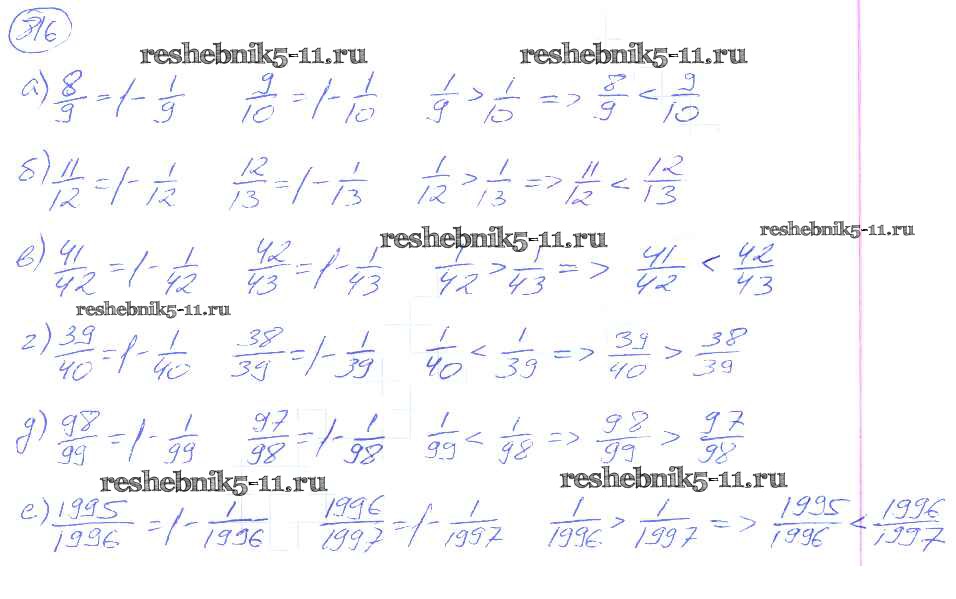 716
reshebnik5-11.ru reshebnik5-11.ru
а) 8/9 = 1 - 1/9 9/10 = 1 - 1/10 1/9 > 1/10 => 8/9 < 9/10
б) 11/12 = 1 - 1/12 12/13 = 1 - 1/13 1/12 > 1/13 => 11/12 < 12/13
reshebnik5-11.ru reshebnik5-11.ru
в) 41/42 = 1 - 1/42 42/43 = 1 - 1/43 1/42 > 1/43 => 41/42 < 42/43
reshebnik5-11.ru
г) 39/40 = 1 - 1/40 38/39 = 1 - 1/39 1/40 < 1/39 => 39/40 > 38/39
д) 98/99 = 1 - 1/99 97/98 = 1 - 1/98 1/99 < 1/98 => 98/99 > 97/98
reshebnik5-11.ru reshebnik5-11.ru
е) 1995/1996 = 1 - 1/1996 1996/1997 = 1 - 1/1997 1/1996 > 1/1997 => 1995/1996 < 1996/1997